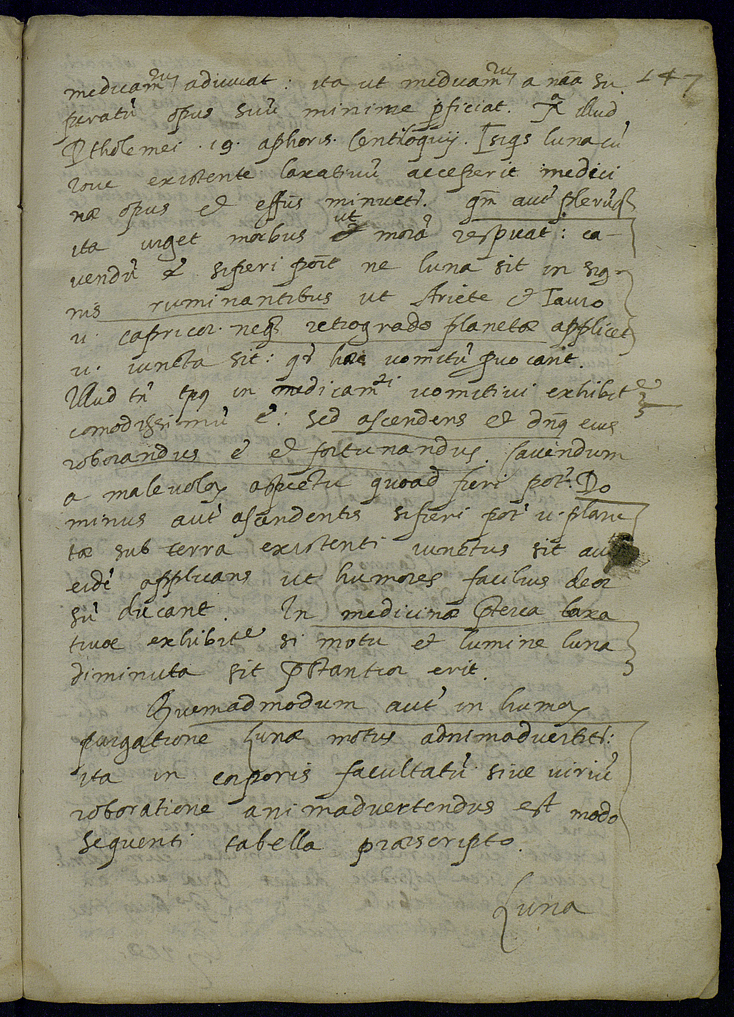 147
medicam̃ adiuuat: ita ut medicam̃ a nãa su
peratũ opus suũ minime pficiat. illud
Ptholemei .19. aphoris. Centiloquij. Luna cũ
Ioue existente laxatiuũ acceperit medici
næ opus et effũs minueť. qm̃ aut̃ plerũq
ita urget morbus ut morã respuat: ca-
uendũ ẽ si fieri põt ne luna sit in sig-
nis ruminantibus ut Ariete et Tauro
u. capricor. neq retrogrado planetæ applicet
u. iuncta sit: qr̃ hæc uomitũ puocant.
Illud tñ tpq in medicam̃ti uomitiui exhibite
comodissimũ ẽ: sed ascendens et dñq eius
roborandus ẽ et fortunandus. Cauendum
a maleuolox aspectu quoad fieri pot̃. Do
minus aut̃ ascendentis si fieri pot̃ u. plane
tæ sub terra existenti iunctus sit aut
eidẽ applicans ut humores facilius deor
sũ ducant. In medicinæ uera laxa
tiuæ exhibite si motu et lumine luna
diminuta sit pstantior erit.
Quemadmodum aut̃ in humox
purgatione lunæ motus adnimaduertiť:
ita in corporis facultatũ siue uiriũ
roboratione animaduertendus est modo
sequenti tabella præscripto.
Luna